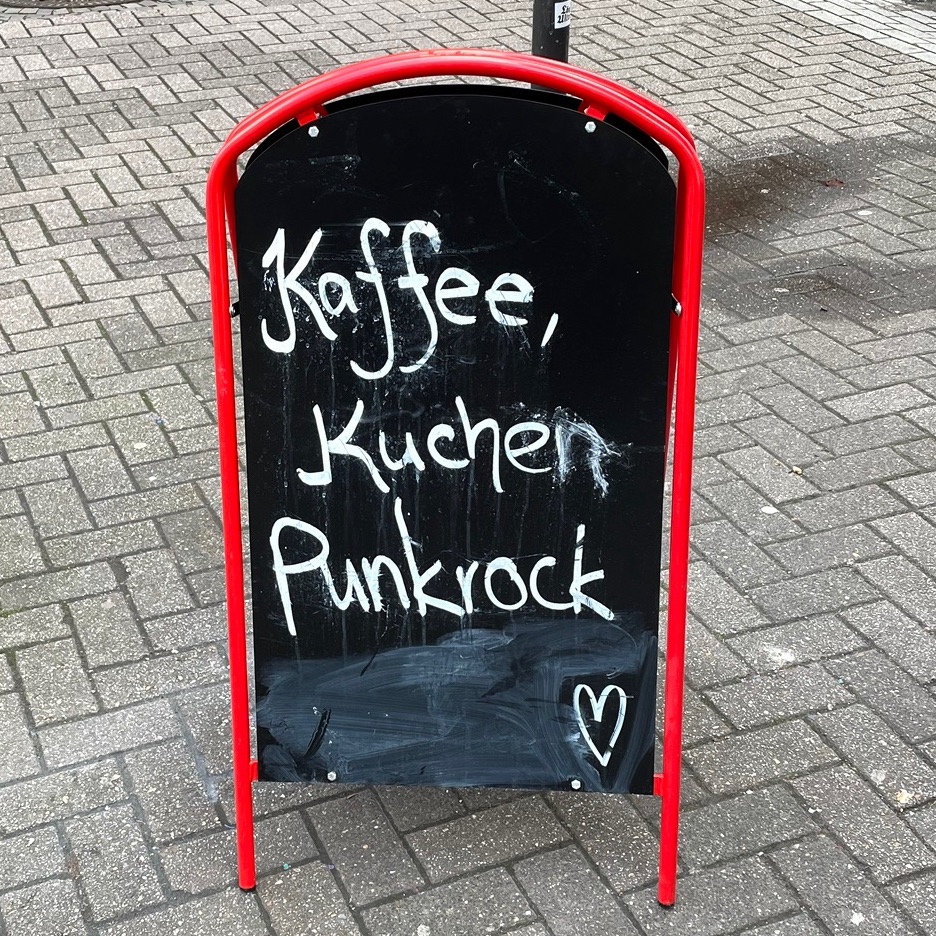 Kaffee,
Kuchen
Punkrock